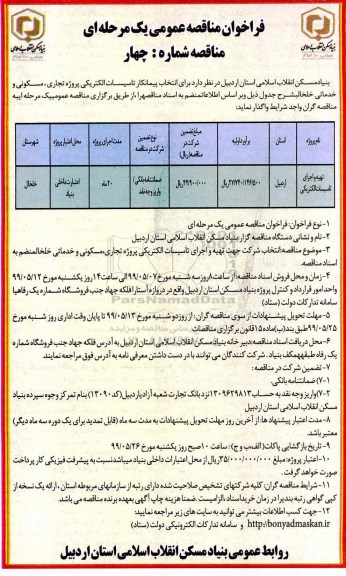 فراخوان مناقصه عمومی یک مرحله ای
مناقصه شماره : چهار
بنیاد مسکن انقلاب اسلامی استان اردبیل در نظر دارد برای انتخاب پیمانکار تاسیسات الکتریکی پروژه تجاری ، مسکونی و
خدماتی خلخال بشرح جدول ذیل و بر اساس اطلاعات منضم به اسناد مناقصه را از طریق برگزاری مناقصه عمومی یک مرحله ای به
مناقصه گران واجد شرایط واگذار نماید:
نام پروژه استان برآورد اولیه مبلغ تضمین شرکت در مناقصه (ریال) نوع تضمین شرکت در مناقصه مدت اجرای پروژه محل اعتبار پروژه شهرستان
تهیه و اجرای تاسیسات الکتریکی اردبیل ریال ضمانتنامه بانکی / واریز وجه نقد ۲۰ ماه اعتبارت داخلی بنیاد خلخال
۱- نوع فراخوان: فراخوان مناقصه عمومی یک مرحله ای
۲- نام و نشانی دستگاه مناقصه گزار بنیاد مسکن انقلاب اسلامی استان اردبیل
۳- موضوع مناقصه: انتخاب شرکت جهت تهیه و اجرای تاسیسات الکتریکی پروژه تجاری، مسکونی و خدماتی خلخال منضم به
اسناد مناقصه.
۴- زمان و محل فروش اسناد مناقصه از ساعت ۸ روز سه شنبه مورخ ۹۹/۰۵/۰۷ الی ساعت ۱۴ روز یکشنبه مورخ ۹۹/۰۵/۱۲
واحد امور قرارداد و کنترل پروژه بنیاد مسکن استان اردبیل واقع در دروازه آستارا فلکه جهاد جنب فروشگاه شماره یک رفاه یا
سامانه تدارکات دولت (ستاد)
۵- مهلت تحویل پیشنهادات از سوی مناقصه گران : از روز دو شنبه مورخ ۹۹/۰۵/۱۳ تا پایان وقت اداری روز شنبه مورخ
۹۹/۰۵/۲۵ طبق بند (ب) ماده ۱۵ قانون برگزاری مناقصات.
۶- محل دریافت اسناد مناقصه: دبیر خانه بنیاد مسکن انقلاب اسلامی استان اردبیل به آدرس فلکه جهاد جنب فروشگاه شماره
یک رفاه طبقه همکف بنیاد . شرکت کنندگان می توانند با در دست داشتن معرفی نامه به آدرس فوق مراجعه نمایند.
۷- تضمین شرکت در مناقصه :
۷-۱) ضمانتنامه بانکی.
۷-۲) واریز وجه نقد به حساب نزد بانک تجارت شعبه آزادی اردبیل (کد ۱۳۰۹۰) بنام تمرکز وجوه سپرده بنیاد
مسکن انقلاب اسلامی استان اردبیل
۸- مدت اعتبار پیشنهاد ها: از آخرین روز مهلت تحویل پیشنهادات به مدت سه ماه (قابل تمدید برای یک دوره سه ماه دیگر)
معتبر باشد.
۹- تاریخ بازگشایی پاکات (الف، ب و ج) : ساعت ۱۰ صبح روز یکشنبه مورخ ۹۹/۰۵/۲۶
۱۰- اعتبار پروژه: مبلغ ۳۵/۰۰۰/۰۰۰/۰۰۰ ریال از محل اعتبارات داخلی بنیاد میباشد نسبت به پیشرفت فیزیکی کار پرداخت
صورت خواهد گرفت.
۱۱- شرایط مناقصه گران: کلیه شرکتهای تشخیص صلاحیت شده دارای رتبه از سازمانهای مربوطه استان ، ارائه یک نسخه از
کپی گواهی رتبه بندی را در زمان خرید اسناد الزامیست .ضمنا هزینه چاپ آگهی بعهده برنده مناقصه می باشد.
۱۲- جهت کسب اطلاعات بیشتر می توانید به سایت های زیر مراجعه نمایید:
http://bonyadmaskan.ir و سامانه تدارکات الکترونیکی دولت (ستاد)
روابط عمومی بنیاد مسکن انقلاب اسلامی استان اردبیل